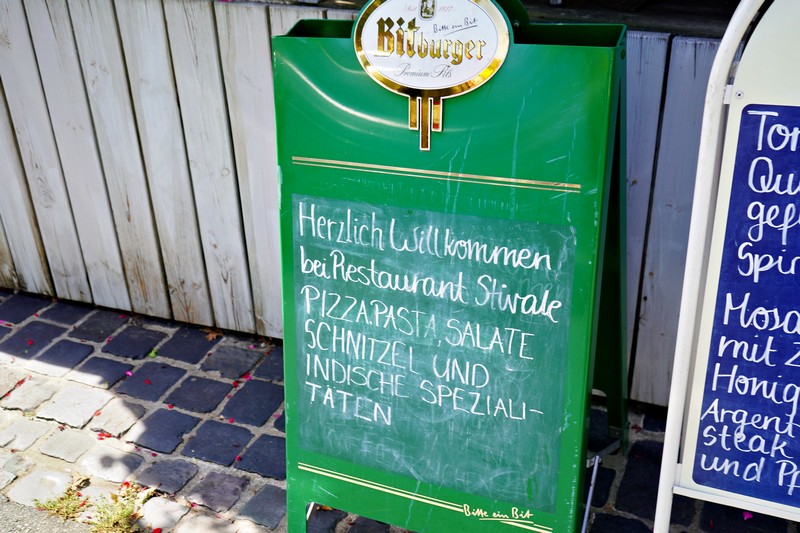 Bitte ein Bit
Bitburger
Premium Pils
Herzlich Willkommen
bei Restaurant Stivale
PIZZA, PASTA, SALATE
SCHNITZEL UND
INDISCHE SPEZIALI-
TÄTEN
Bitte ein Bit
Tom
Qu
gef
Spin
Moza
mit Z
Honig
Argent
steak
und Pf